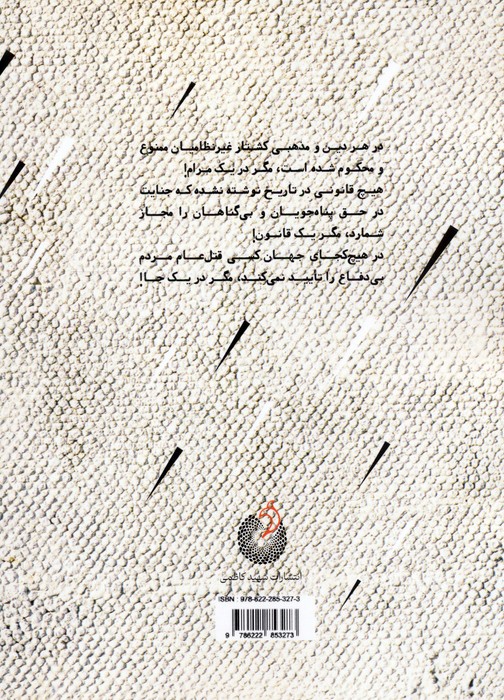 در هر دین و مذهبی کشتار غیرنظامیان ممنوع
و محکوم شده است، مگر در یک مرام!
هیچ قانونی در تاریخ نوشته نشده که جنایت
در حق پناه‌جویان و بی‌گناهان را مجاز
شمارد، مگر یک قانون!
در هیچ‌کجای جهان کسی قتل‌عام مردم
بی‌دفاع را تأیید نمی‌کند، مگر در یک جا!
انتشارات شهید کاظمی
ISBN 978-622-285-327-3
9 786222 853273